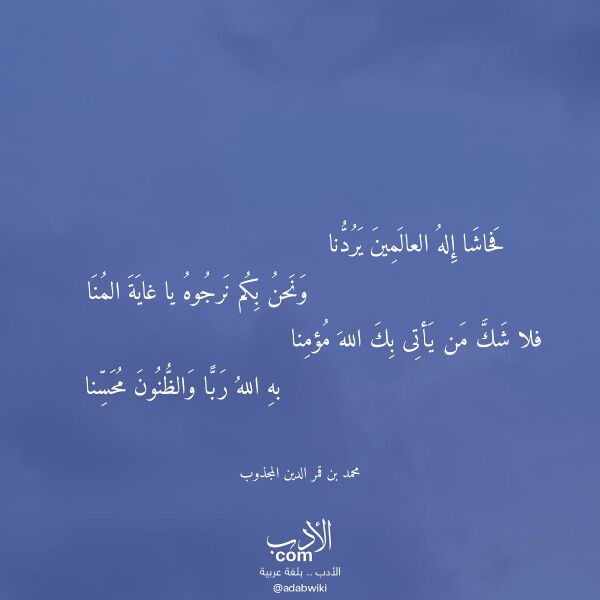 فَحَاشَا إِلهُ العالَمِينَ يَرُدُّنا
وَنَحنُ بِكُم نَرجُوهُ يا غايَةَ المُنَا
فلا شَكَّ مَن يَأتِى بِكَ اللهَ مُؤمِنا
بهِ اللهُ رَبًّا وَالظُّنُونَ مُحَسِّنا
محمد بن قمر الدين المجذوب
الأدب
com
الأدب .. بلغة عربية
@adabwiki